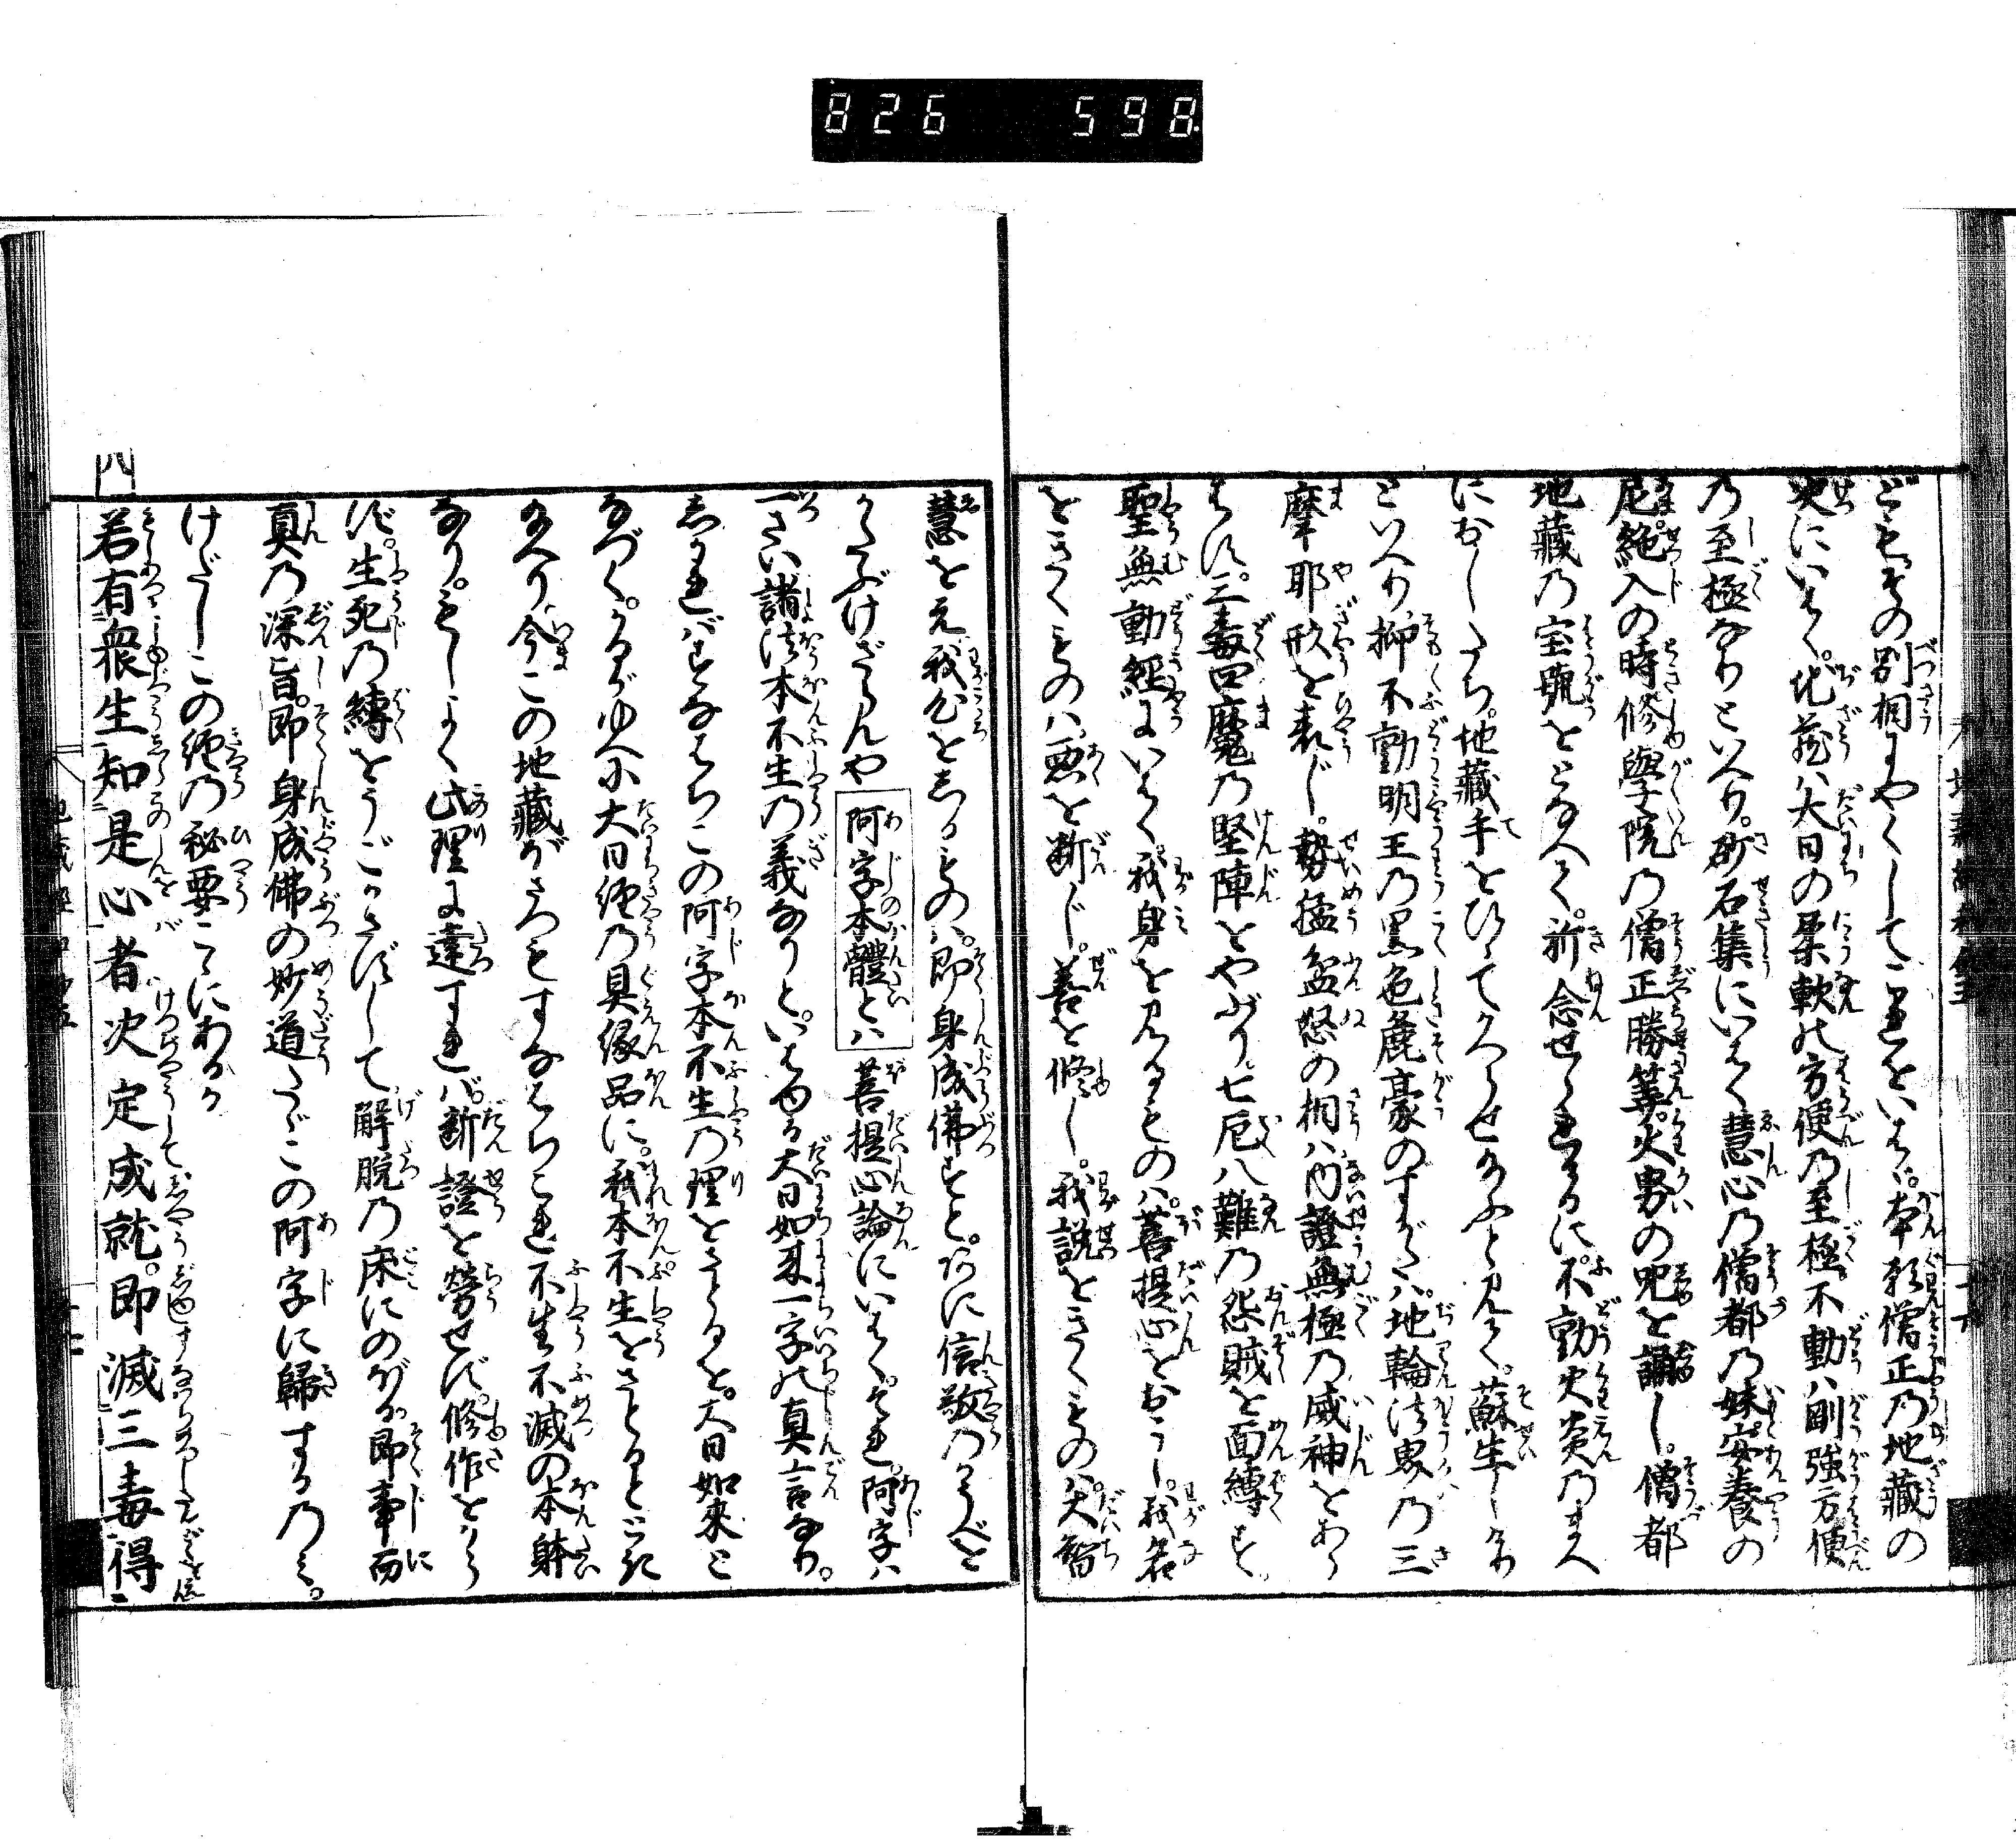 826 598
ども。その別相まやくしてこれをいはゞ。本願僧正乃地藏の
史にいはく。地蔵ハ大日の柔軟の方便乃至極不動ハ剛強方便
乃至極なりといへり。砂石集にいはく慧心乃僧都乃妹安養の
尼絶入の時修學院乃僧正勝筭火界の呪を誦し。僧都
地藏乃宝號をとなへて。祈念せられけるに。不動火炎乃まへ
におしたち。地藏手をひいてかへらせ給ふと見て。蘇生しけり
といへり抑不動明王乃黒色麁豪のすがたハ。地輪法界乃三
摩耶形を表じ。勢猛忿怒の相ハ内證無極乃威神をあら
はす。三毒四魔乃堅陣をやぶり。七厄八難乃怨賊を面縛す。
聖無動經にいはく我身を見るものハ。菩提心をおこし。我名
をきくものハ悪を断じ。善を修し。我説をきくものハ。大智
慧をえ我心をしるものハ。即身成佛すと。たれに信敬乃かうべを
かたぶけざらんや 阿字本體とハ 菩提心論にいはく。それ阿字ハ
一さい諸法本不生乃義なりと。いはゆる大日如来一字の真言なり。
しかれバすなはちこの阿字本不生乃理をさとるを。大日如来と
なづく。かるがゆへに大日經乃具縁品に。我本不生をさとるととき
給へり今この地藏ぼさつもすなはちこれ不生不滅の本躰
なり。もしよく此理に達すれバ。断證を労せず。修作をから
ず。生死乃縛をうごかさずして解脱乃床にのぼる。即事而
真乃深旨。即身成佛の妙道たゞこの阿字に歸する乃ミ。
けだしこの經乃秘要こゝにあるか
若有衆生知是心者決定成就。即滅三毒得